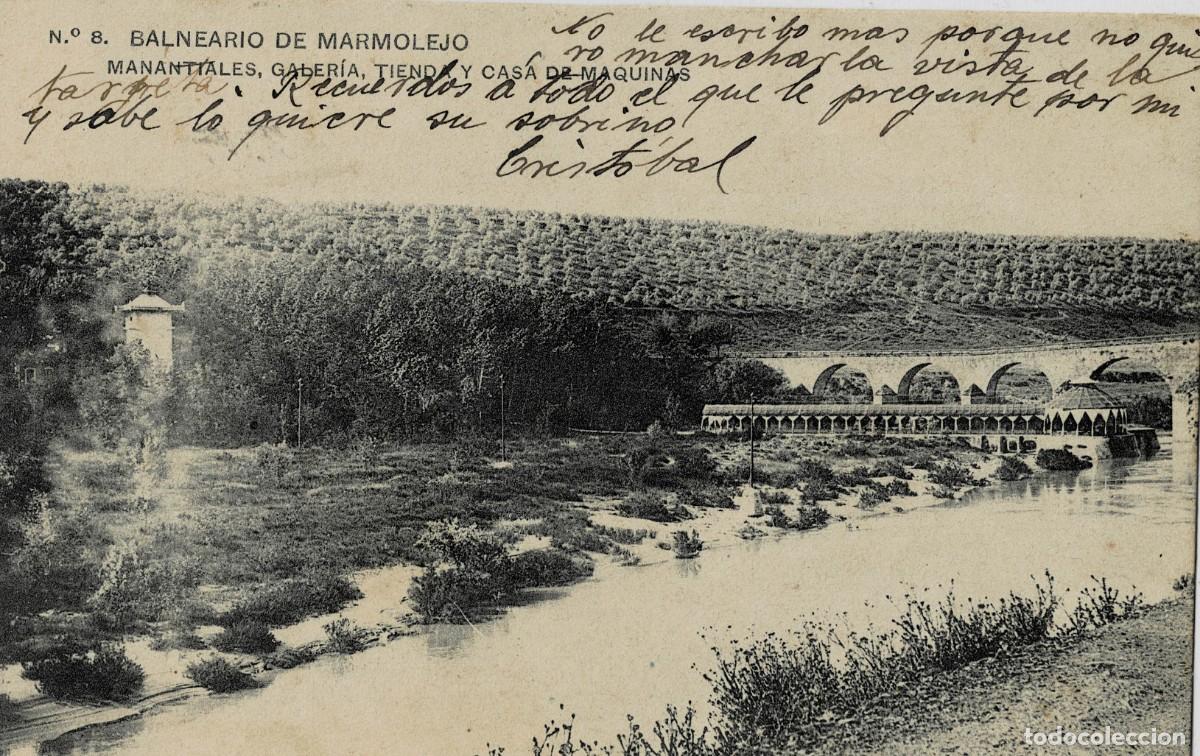 N.º 8. BALNEARIO DE MARMOLEJO
MANANTIALES, GALERÍA, TIENDA Y CASA DE MAQUINAS
No le escribo mas porque no quie
ro manchar la vista de la
targeta. Recuerdos á todo el que le pregunte por mi
y sabe lo quiere su sobrino
Cristóbal
todocoleccion